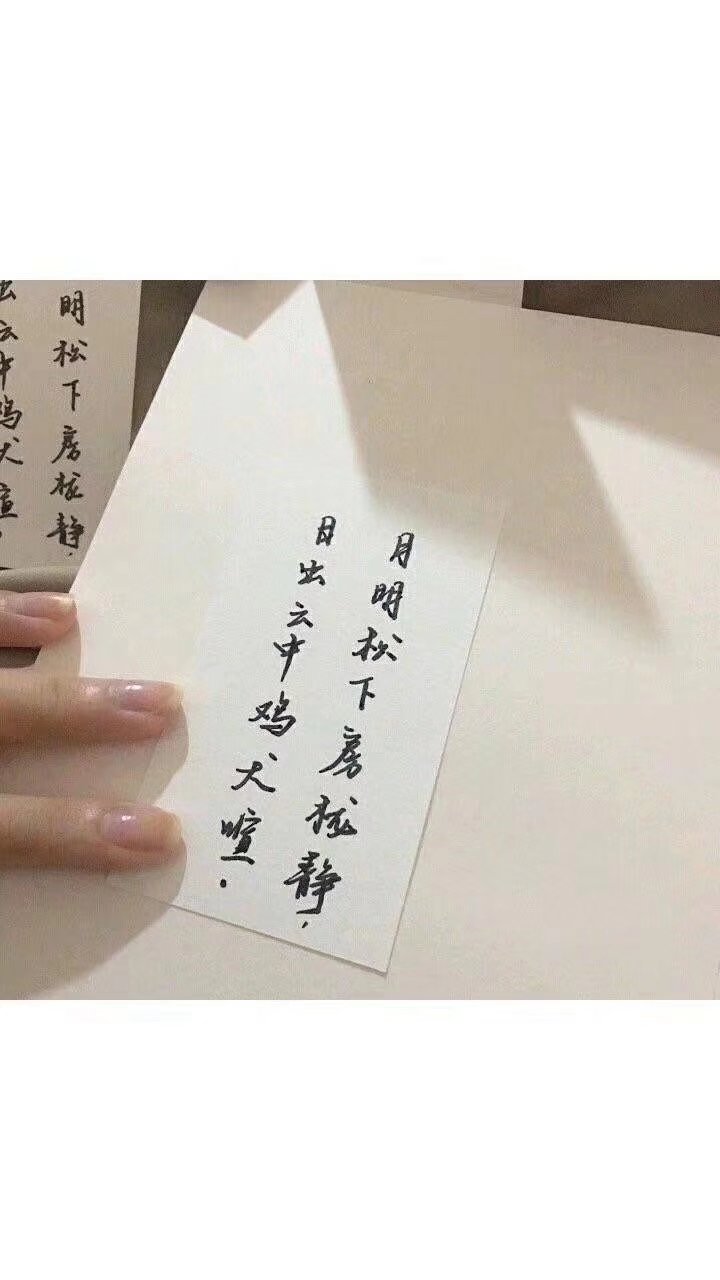 月明松下房栊静,
日出云中鸡犬喧.
明松下房栊静,
出云中鸡犬喧.